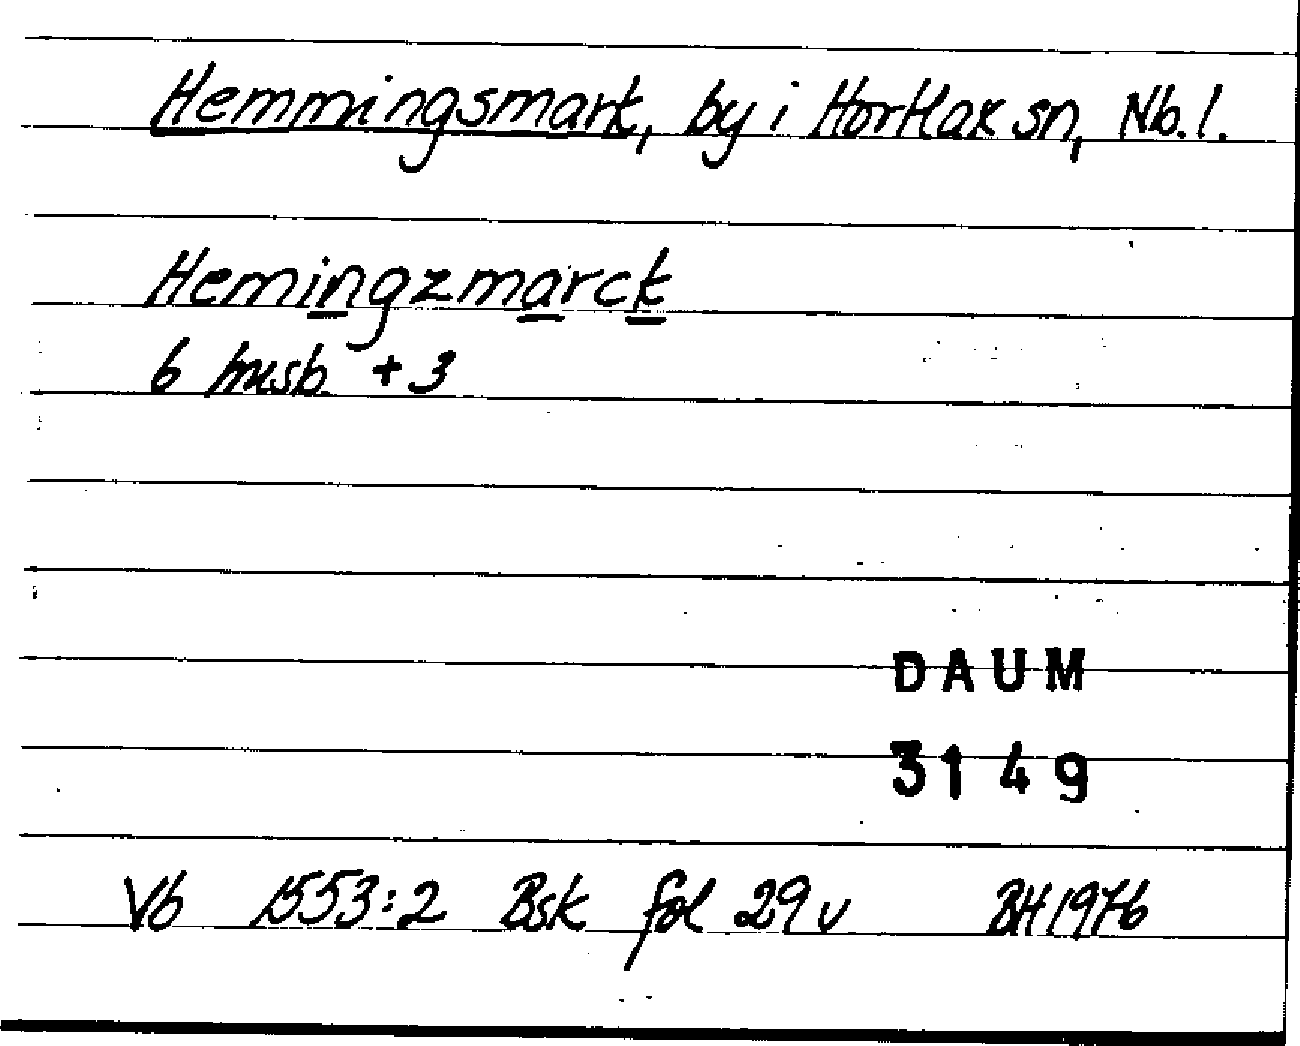 Hemmingsmark, by i Hortlax sn, Nb. l.
Hemingzmarck
6 husb. + 3
DAUM
3149
Vb 1553:2 Bsk fol 29 v BH 1976